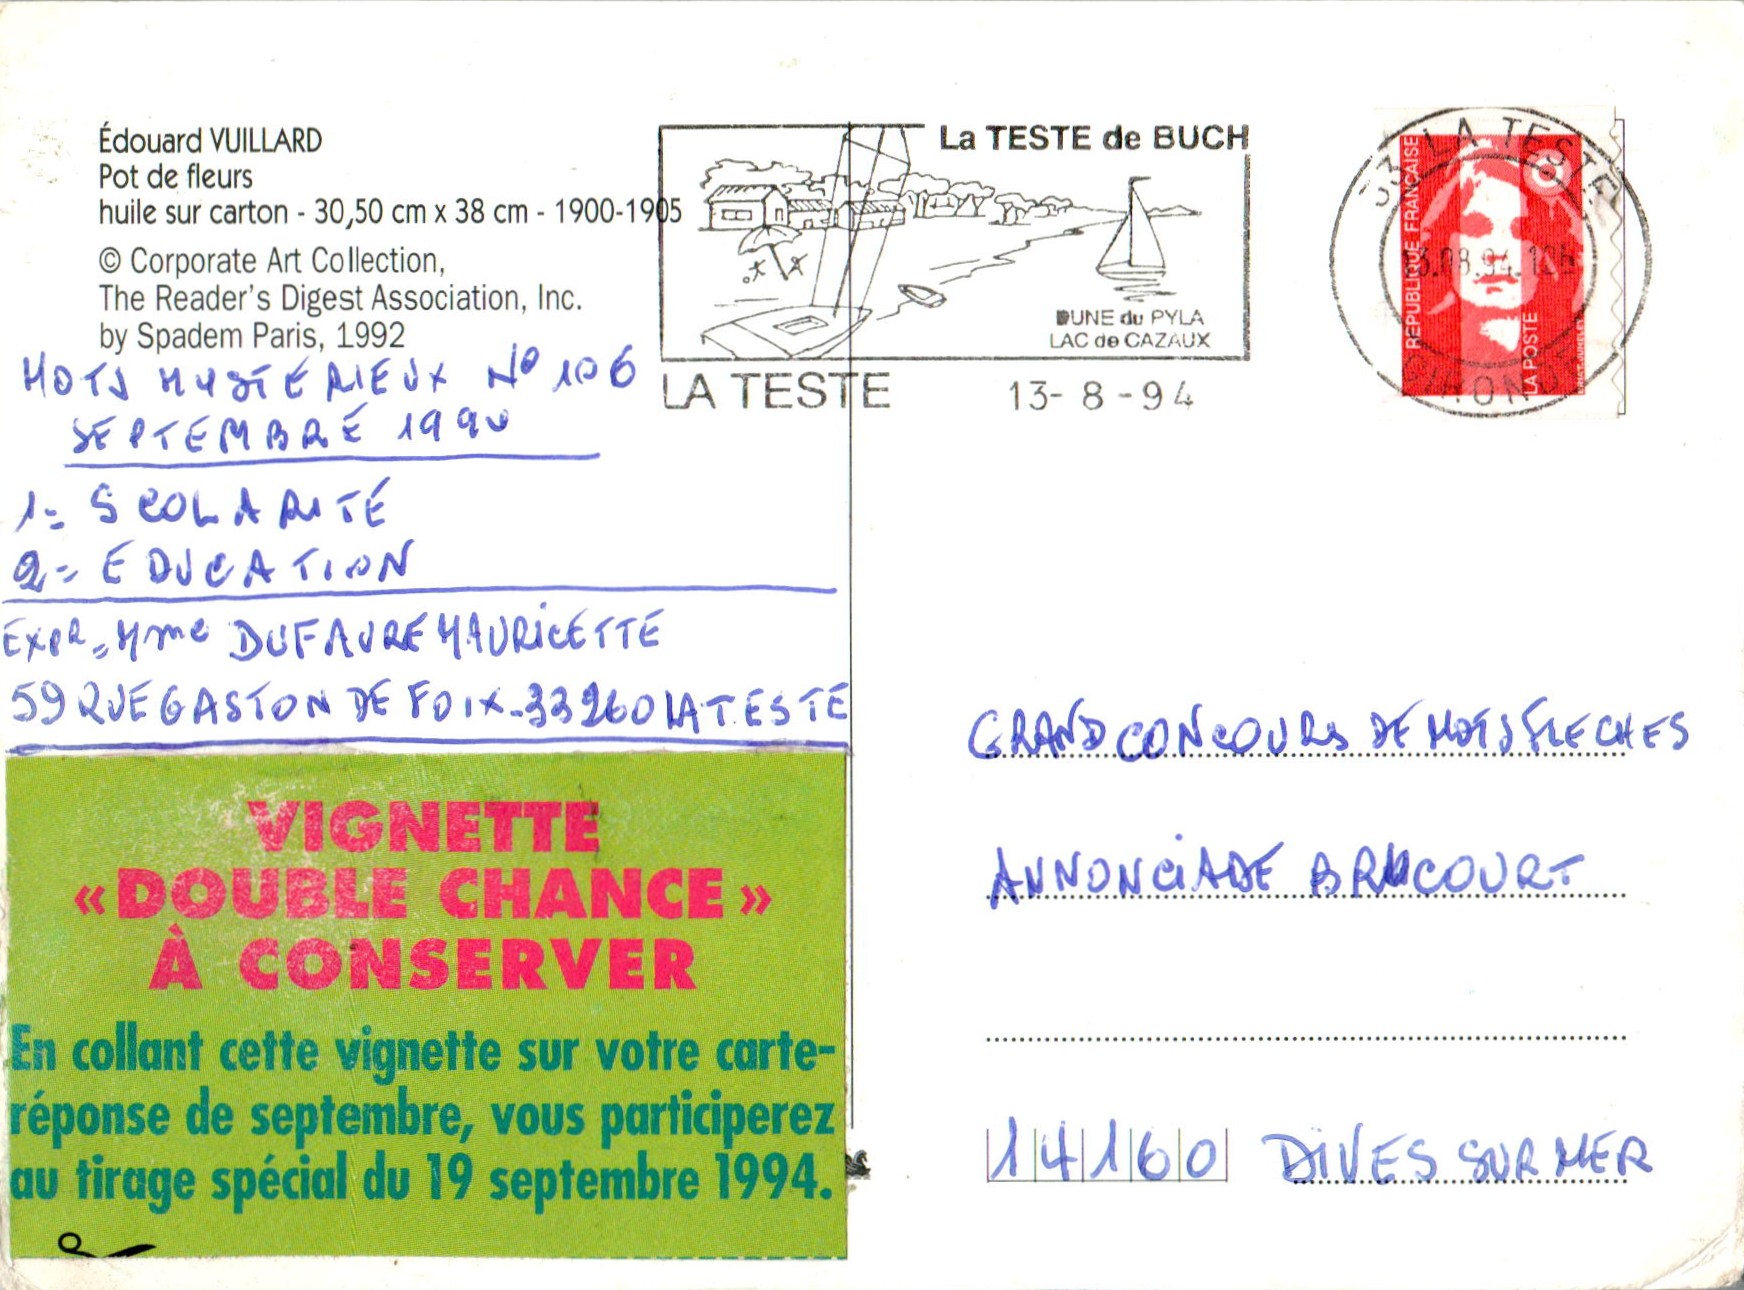 Édouard VUILLARD
Pot de fleurs
huile sur carton - 30,50 cm x 38 cm - 1900-1905
© Corporate Art Collection,
The Reader's Digest Association, Inc.
by Spadem Paris, 1992
MOTS MYSTÉRIEUX N° 106
SEPTEMBRE 1994
1= SCOLARITÉ
2= EDUCATION
EXPR= Mme DUFAURE MAURICETTE
59 RUE GASTON DE FOIX - 33260 LA TESTE
VIGNETTE
«DOUBLE CHANCE»
À CONSERVER
En collant cette vignette sur votre carte-
réponse de septembre, vous participerez
au tirage spécial du 19 septembre 1994.
La TESTE de BUCH
DUNE du PYLA
LAC de CAZAUX
LA TESTE 13- 8 -94
33 LA TESTE
GIRONDE
REPUBLIQUE FRANÇAISE
LA POSTE
GRAND CONCOURS DE MOTS FLECHES
ANNONCIADE BRUCOURT
14160 DIVES SUR MER